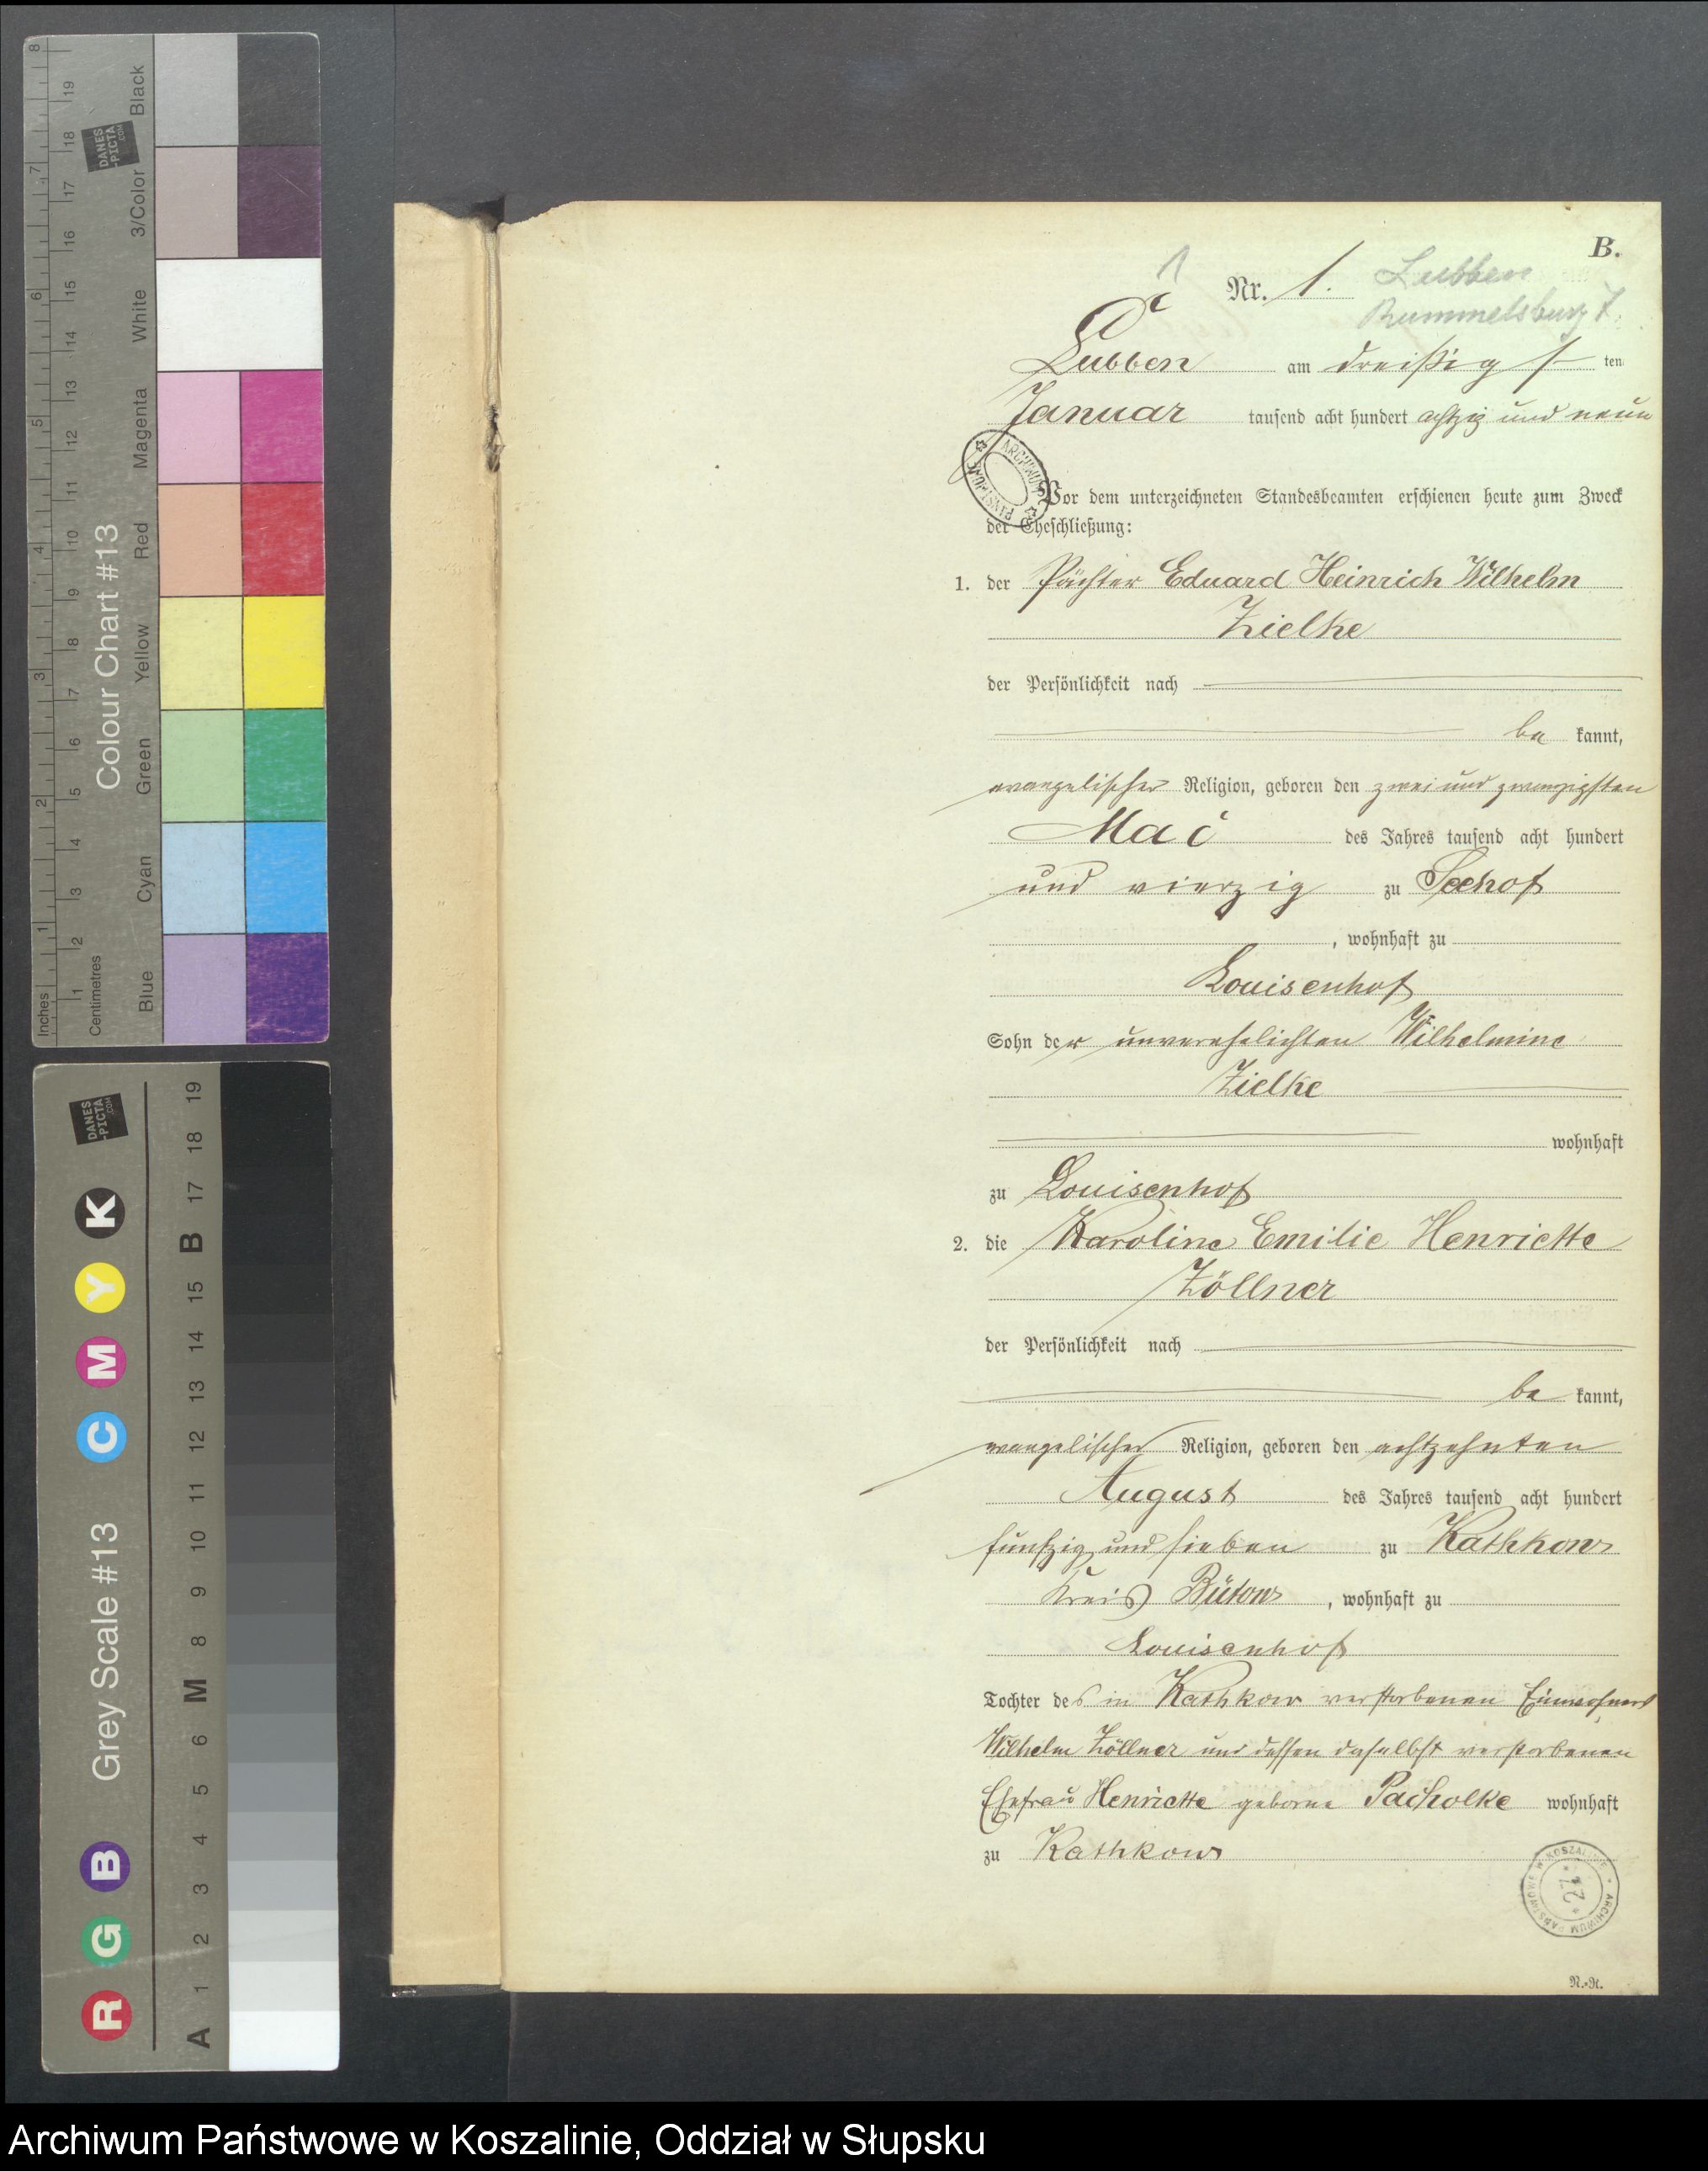 B.
1
Nr. 1.
Lubben
Rummelsburg
C
Lubben am dreißigsten
Januar tausend acht hundert achtzig und neun
Vor dem unterzeichneten Standesbeamten erschienen heute zum Zweck
der Eheschließung:
1. der Pächter Eduard Heinrich Wilhelm
Zielke
der Persönlichkeit nach
be kannt,
evangelischer Religion, geboren den zwei und zwanzigsten
Mai des Jahres tausend acht hundert
und vierzig zu Seehof
, wohnhaft zu
Louisenhof
Sohn der unverehelichten Wilhelmine
Zielke
wohnhaft
zu Louisenhof
2. die Karoline Emilie Henriette
Zöllner
der Persönlichkeit nach
be kannt,
evangelischer Religion, geboren den achtzehnten
August des Jahres tausend acht hundert
funfzig und sieben zu Kathkow
Kreis Bütow, wohnhaft zu
Louisenhof
Tochter des in Kathkow verstorbenen Einwohners
Wilhelm Zöllner und dessen daselbst verstorbenen
Ehefrau Henriette geborne Pacholke wohnhaft
zu Kathkow
ARCHIWUM PAŃSTWOWE W KOSZALINIE
*27*
R.-R.
Colour Chart #13
Inches
Centimetres
Blue Cyan Green Yellow Red Magenta White 3/Color Black
DANES-PICTA.COM
Grey Scale #13
R G B C M Y K
A 1 2 3 4 5 6 M 8 9 10 11 12 13 14 15 B 17 18 19
DANES-PICTA.COM
Archiwum Państwowe w Koszalinie, Oddział w Słupsku